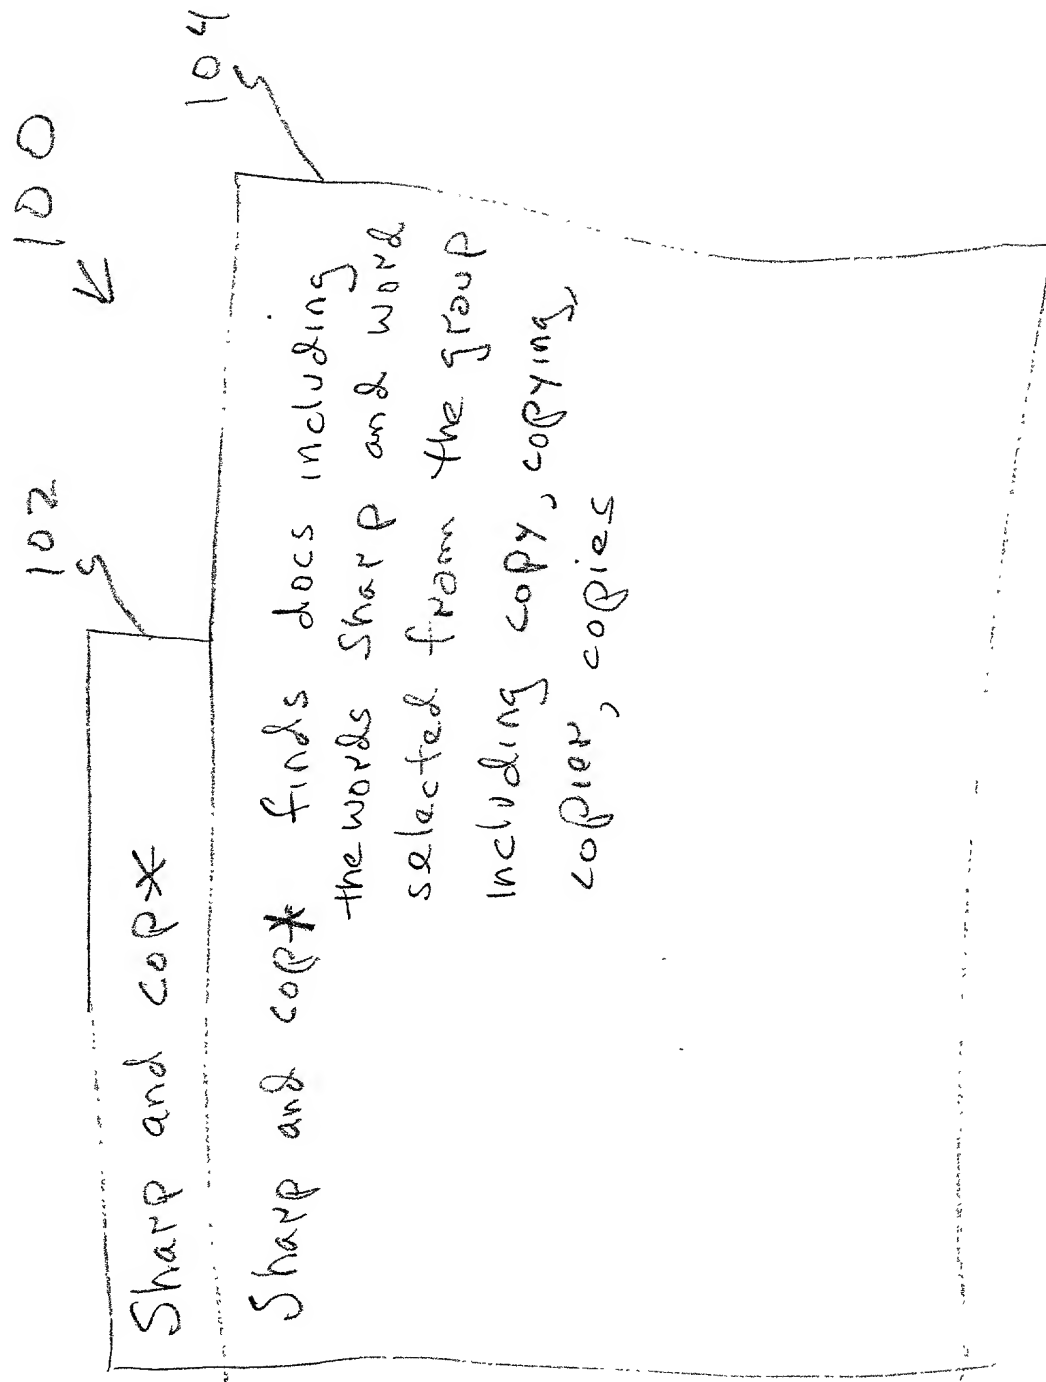 100
102
Sharp and cop*
104
Sharp and cop* finds docs including
the words Sharp and word
selected from the group
including copy, copying,
copier, copies